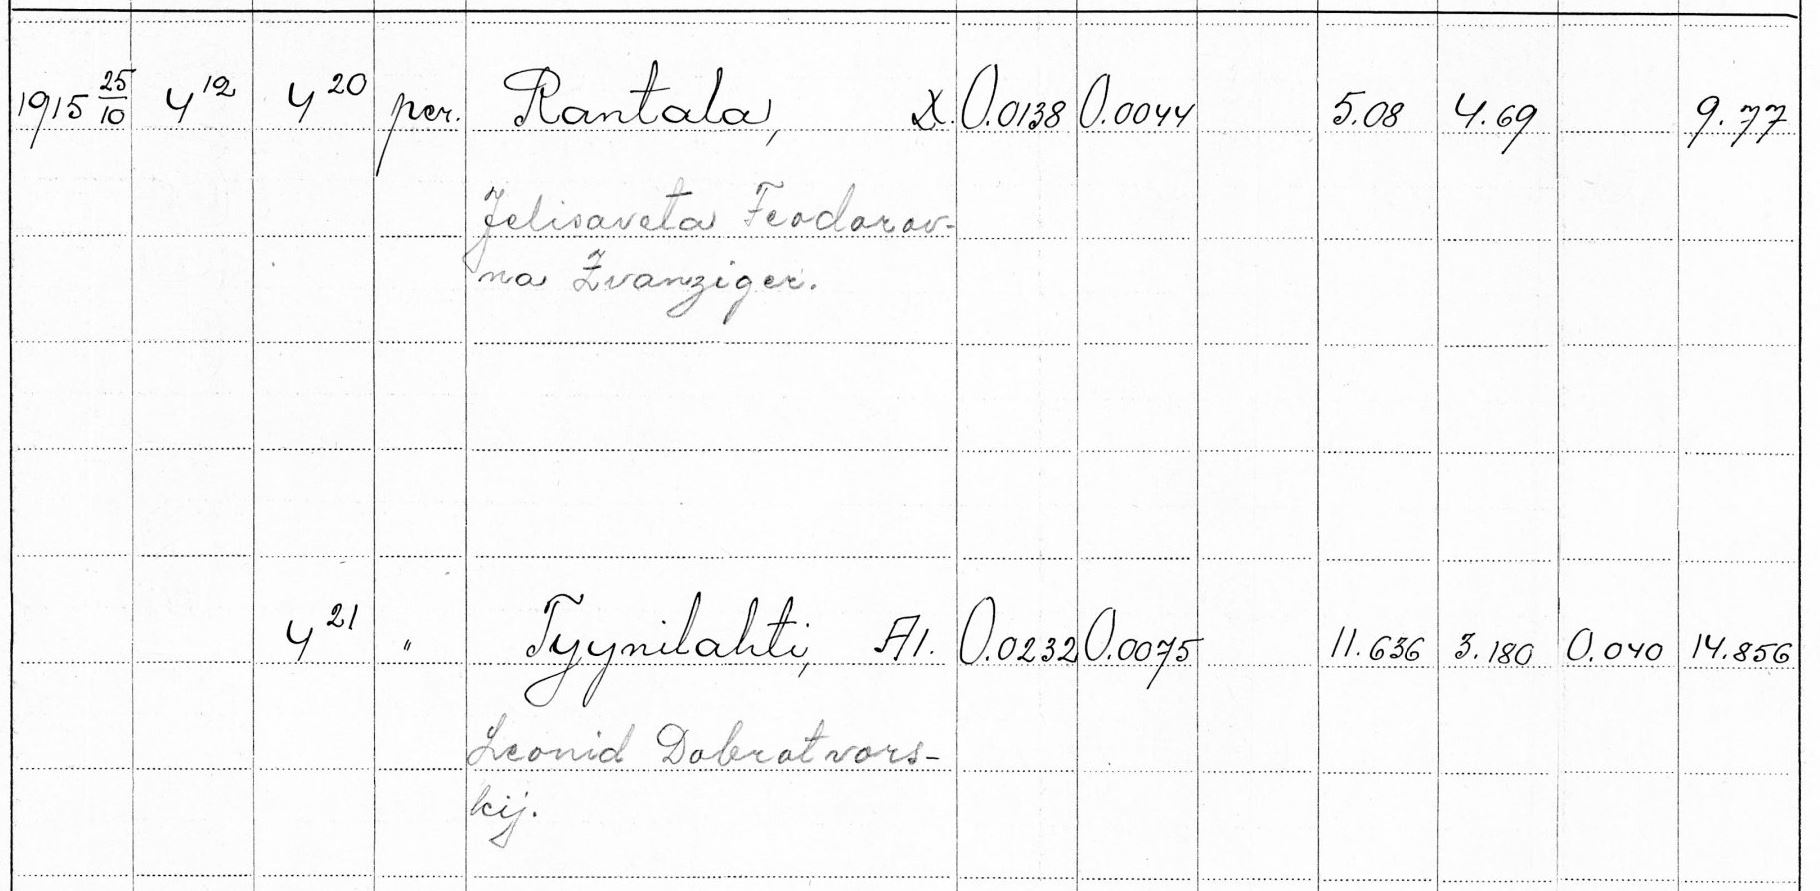 1915 25/10 4¹² 4²⁰ per. Rantala, X. 0.0138 0.0044 5.08 4.69 9.77
Jelisaveta Feodorov-
na Zvanziger.
4²¹ " Tyynilahti, A1. 0.0232 0.0075 11.636 3.180 0.040 14.856
Leonid Dobrotvors-
kij.